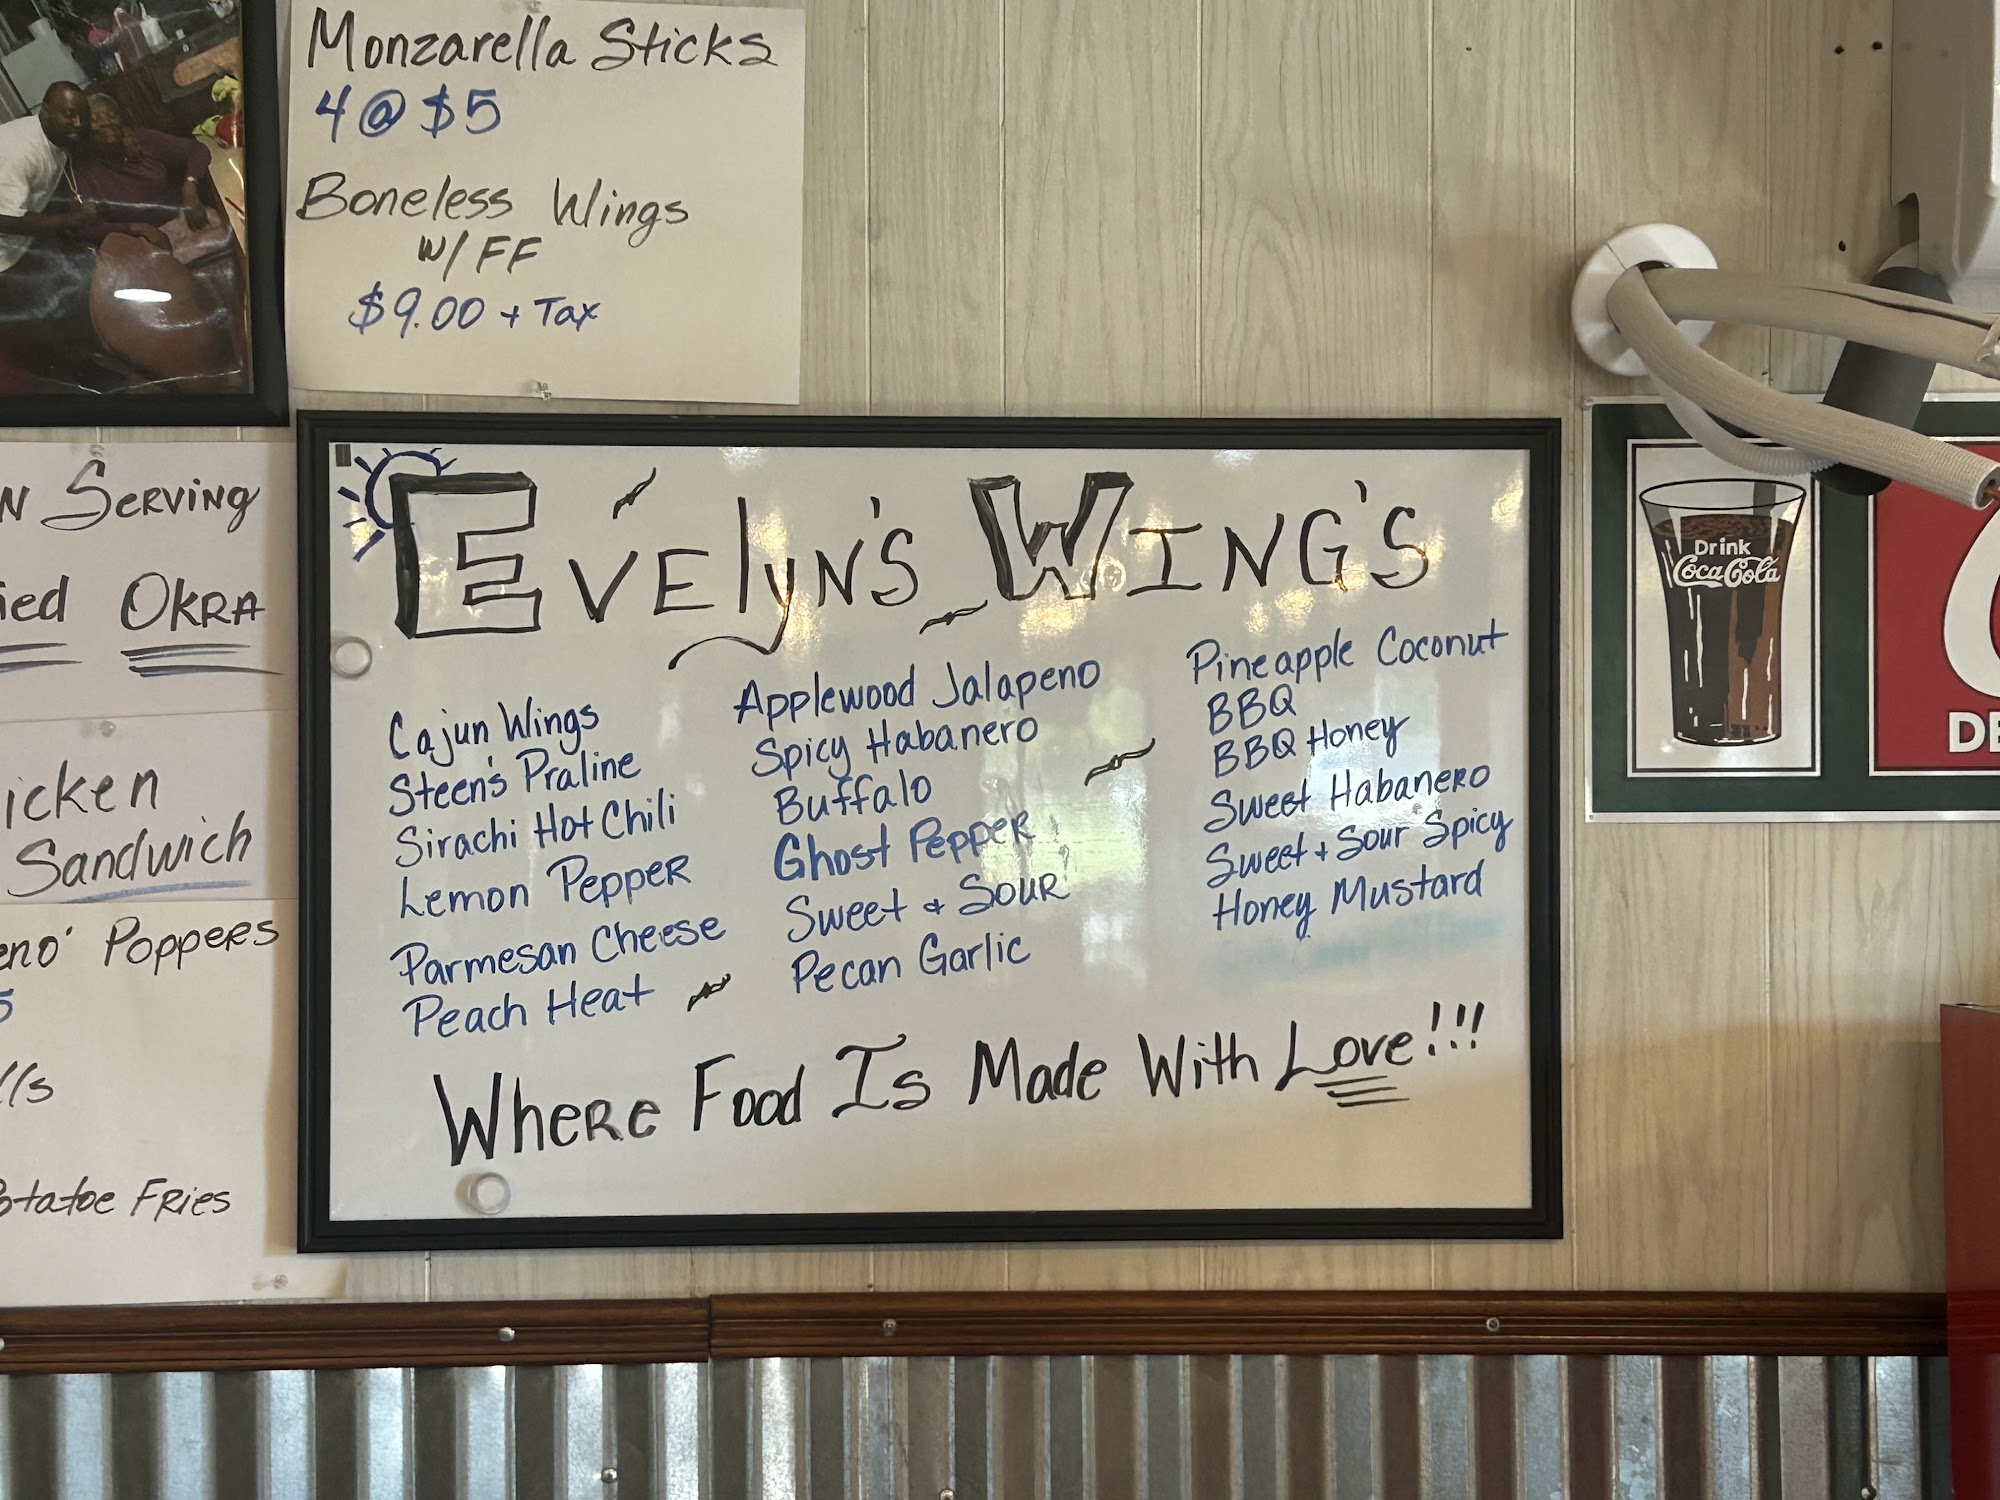 Monzarella Sticks
4 @ $5
Boneless Wings
w/ FF
$9.00 + Tax
Serving
Okra
Sandwich
Poppers
Fries
Evelyn's Wing's
Cajun Wings
Steen's Praline
Sirachi Hot Chili
Lemon Pepper
Parmesan Cheese
Peach Heat
Applewood Jalapeno
Spicy Habanero
Buffalo
Ghost Pepper
Sweet & Sour
Pecan Garlic
Pineapple Coconut
BBQ
BBQ Honey
Sweet Habanero
Sweet & Sour Spicy
Honey Mustard
Where Food Is Made With Love!!!
Drink
Coca-Cola